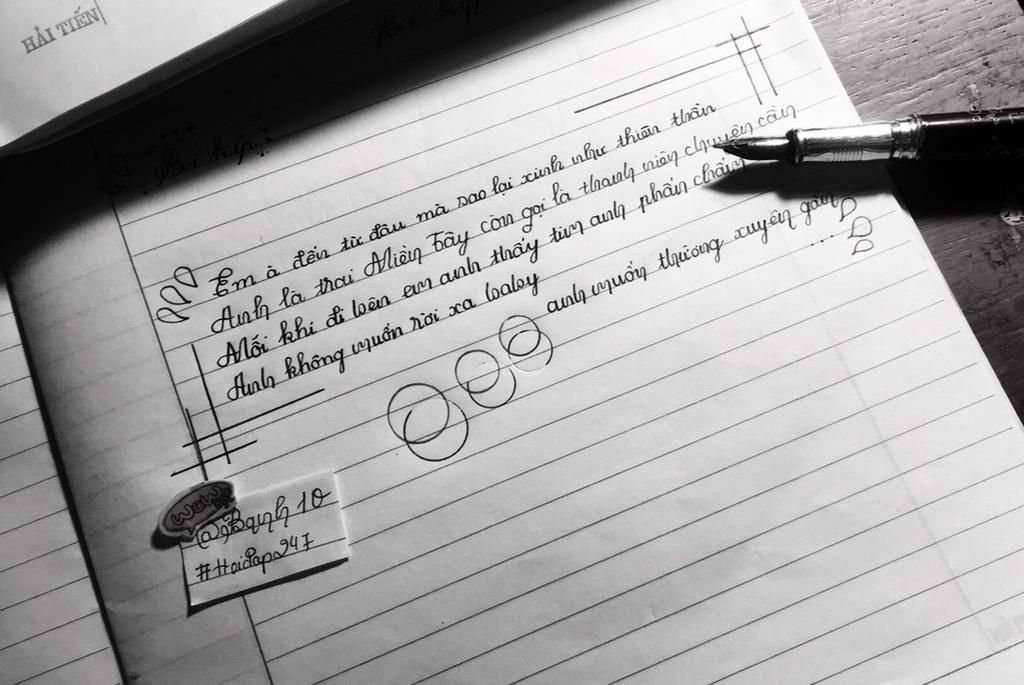 HẢI TIẾN
Bí kíp
Bí kíp
Em à đến từ đâu mà sao lại xinh như thiên thần
Anh là trai Miền Tây còn gọi là thanh niên chuyên cần
Mỗi khi đi bên em anh thấy tim anh phân chần
Anh không muốn rời xa baby anh muốn thương xuyên gần
...
WOW
@Bqnh10
#Hoidap247